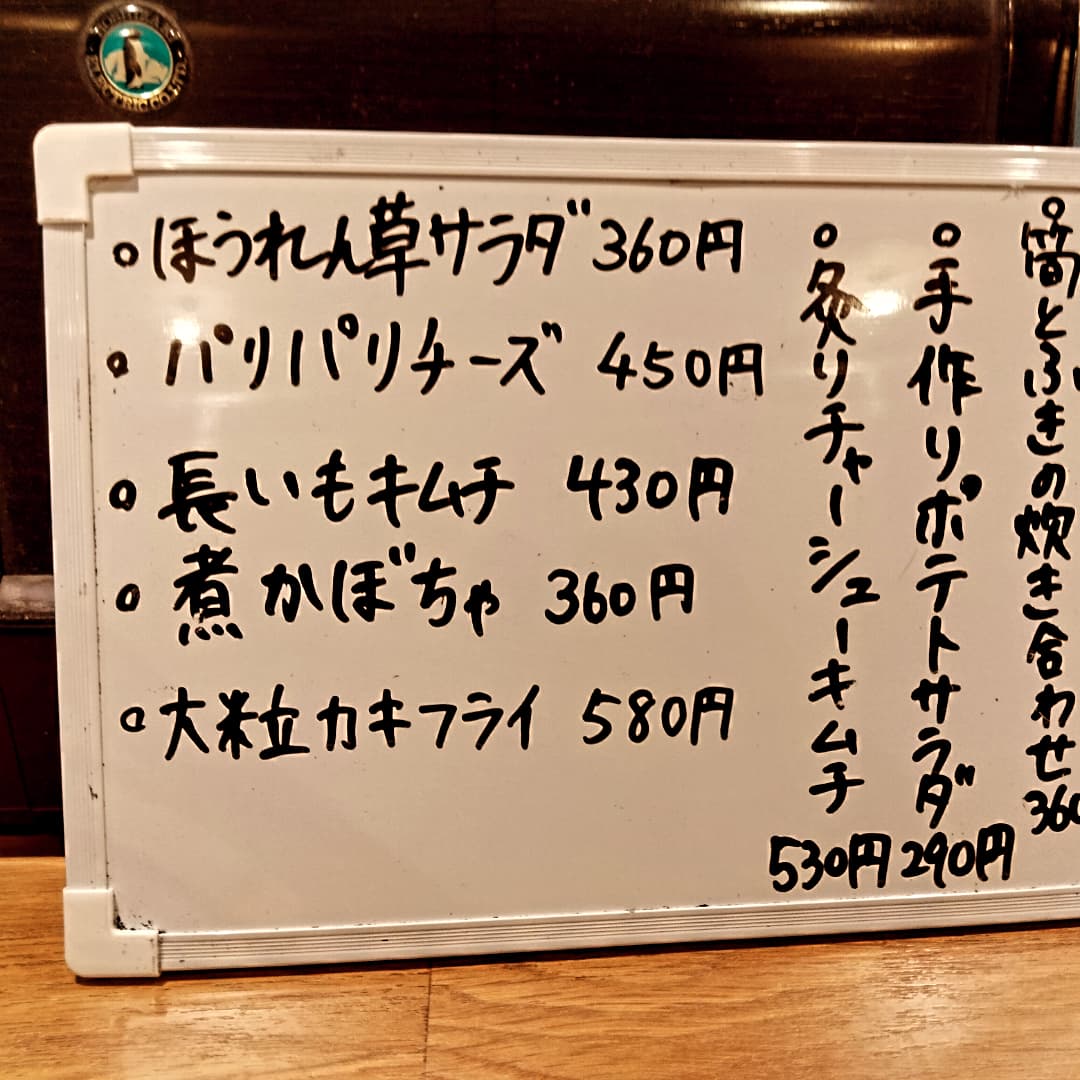 HOSHIZAKI
ELECTRIC CO.LTD.
ほうれん草サラダ 360円
パリパリチーズ 450円
長いもキムチ 430円
煮かぼちゃ 360円
大粒カキフライ 580円
筍とふきの炊き合わせ 360
手作りポテトサラダ 290円
炙りチャーシューキムチ 530円